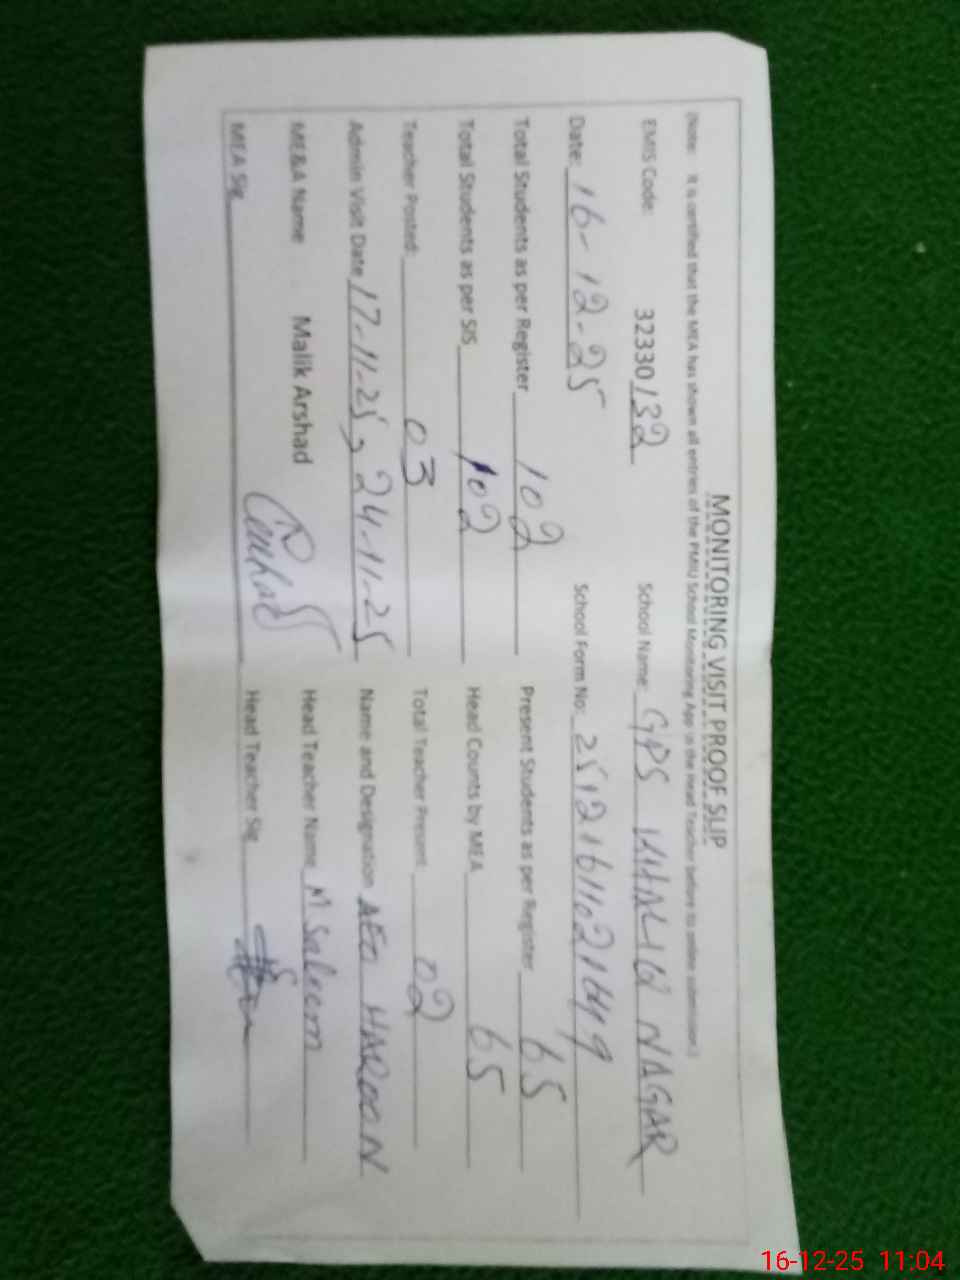 MONITORING VISIT PROOF SLIP
(Note: It is certified that the MEA has shown all entries of the PMIU School Monitoring App to the Head Teacher before to online submission.)
EMIS Code: 32330132 School Name: GPS KHALIQ NAGAR
Date: 16-12-25 School Form No:
Total Students as per Register 102 Present Students as per Register 65
Total Students as per SIS 102 Head Counts by MEA 65
Teacher Posted: 03 Total Teacher Present 02
Admin Visit Date 17-11-25, 24-11-25 Name and Designation AEO HAROON
ME&A Name Malik Arshad Head Teacher Name M Saleem
MEA Sig Head Teacher Sig
16-12-25 11:04